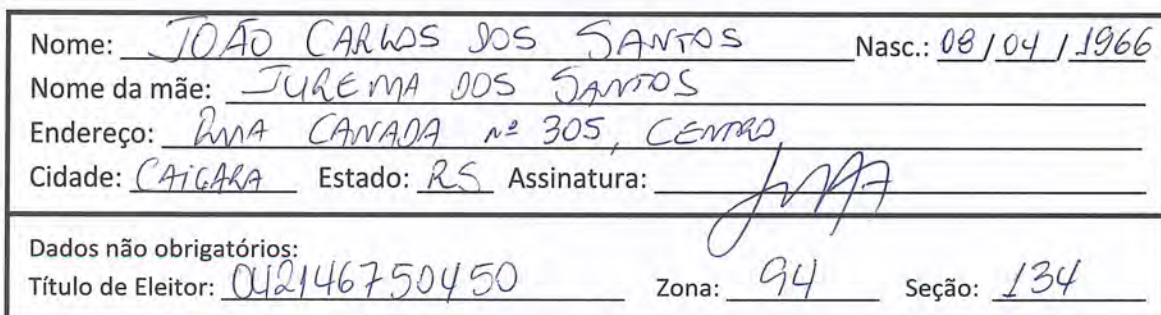 Nome: JOÃO CARLOS DOS SANTOS Nasc.: 08/04/1966
Nome da mãe: JUREMA DOS SANTOS
Endereço: RUA CANADA nº 305, CENTRO
Cidade: CAIÇARA Estado: RS Assinatura:
Dados não obrigatórios:
Título de Eleitor: 042146750450 Zona: 94 Seção: 134